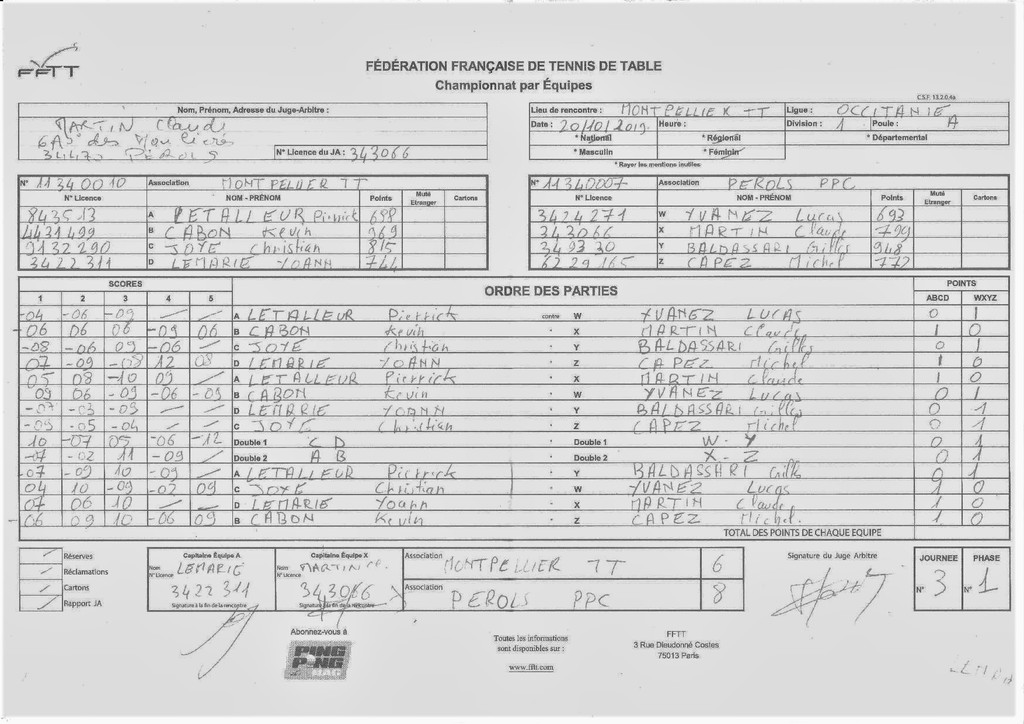 FFTT
FÉDÉRATION FRANÇAISE DE TENNIS DE TABLE
Championnat par Équipes
C.S.F. 13.2.0.4a
Nom, Prénom, Adresse du Juge-Arbitre :
MARTIN Claude
34470 PEROLS
N° Licence du JA : 343066
Lieu de rencontre : MONTPELLIER TT Ligue : OCCITANIE
Date : 20/10/2019 Heure : Division : 1 Poule : A
* National * Régional * Départemental
* Masculin * Féminin
* Rayer les mentions inutiles
N° 11340010 Association MONTPELLIER TT
N° Licence NOM - PRÉNOM Points Muté Etranger Cartons
843513 A LETALLEUR Pierrick 688
4431499 B CABON Kevin 969
9132290 C JOYE Christian 815
3422311 D LEMARIE YOANN 744
N° 11340007 Association PEROLS PPC
N° Licence NOM - PRÉNOM Points Muté Etranger Cartons
3424271 W YVANEZ Lucas 693
343066 X MARTIN Claude 799
349330 Y BALDASSARI Gilles 948
6229165 Z CAPEZ Michel 772
SCORES ORDRE DES PARTIES POINTS
1 2 3 4 5 ABCD WXYZ
-04 -06 -09 / / A LETALLEUR Pierrick contre W YVANEZ LUCAS 0 1
-06 06 06 -09 06 B CABON Kevin " X MARTIN Claude 1 0
-08 -06 09 -06 / C JOYE Christian " Y BALDASSARI Gilles 0 1
07 -09 -08 12 08 D LEMARIE YOANN " Z CAPEZ Michel 1 0
05 08 -10 09 / A LETALLEUR Pierrick " X MARTIN Claude 1 0
09 06 -09 -06 -09 B CABON Kevin " W YVANEZ Lucas 0 1
-07 -03 -09 / / D LEMARIE YOANN " Y BALDASSARI Gilles 0 1
-09 -05 -04 / / C JOYE Christian " Z CAPEZ Michel 0 1
10 -07 05 -06 -12 Double 1 C D " Double 1 W - Y 0 1
-02 11 -09 / Double 2 A B " Double 2 X - Z 0 1
-07 -09 10 -09 / A LETALLEUR Pierrick " Y BALDASSARI Gilles 0 1
04 10 -09 -07 09 C JOYE Christian " W YVANEZ Lucas 1 0
07 06 10 / / D LEMARIE Yoann " X MARTIN Claude 1 0
-06 09 10 -06 09 B CABON Kevin " Z CAPEZ Michel. 1 0
TOTAL DES POINTS DE CHAQUE EQUIPE
Réserves
Réclamations
Cartons
Rapport JA
Capitaine Équipe A
Nom LEMARIE
N° Licence 3422311
Signature à la fin de la rencontre
Capitaine Équipe X
Nom MARTIN
N° Licence 343066
Signature à la fin de la rencontre
Association MONTPELLIER TT 6
Association PEROLS PPC 8
Signature du Juge Arbitre
JOURNEE N° 3
PHASE N° 1
Abonnez-vous à
PING PONG
Toutes les informations
sont disponibles sur :
www.fftt.com
FFTT
3 Rue Dieudonné Costes
75013 Paris